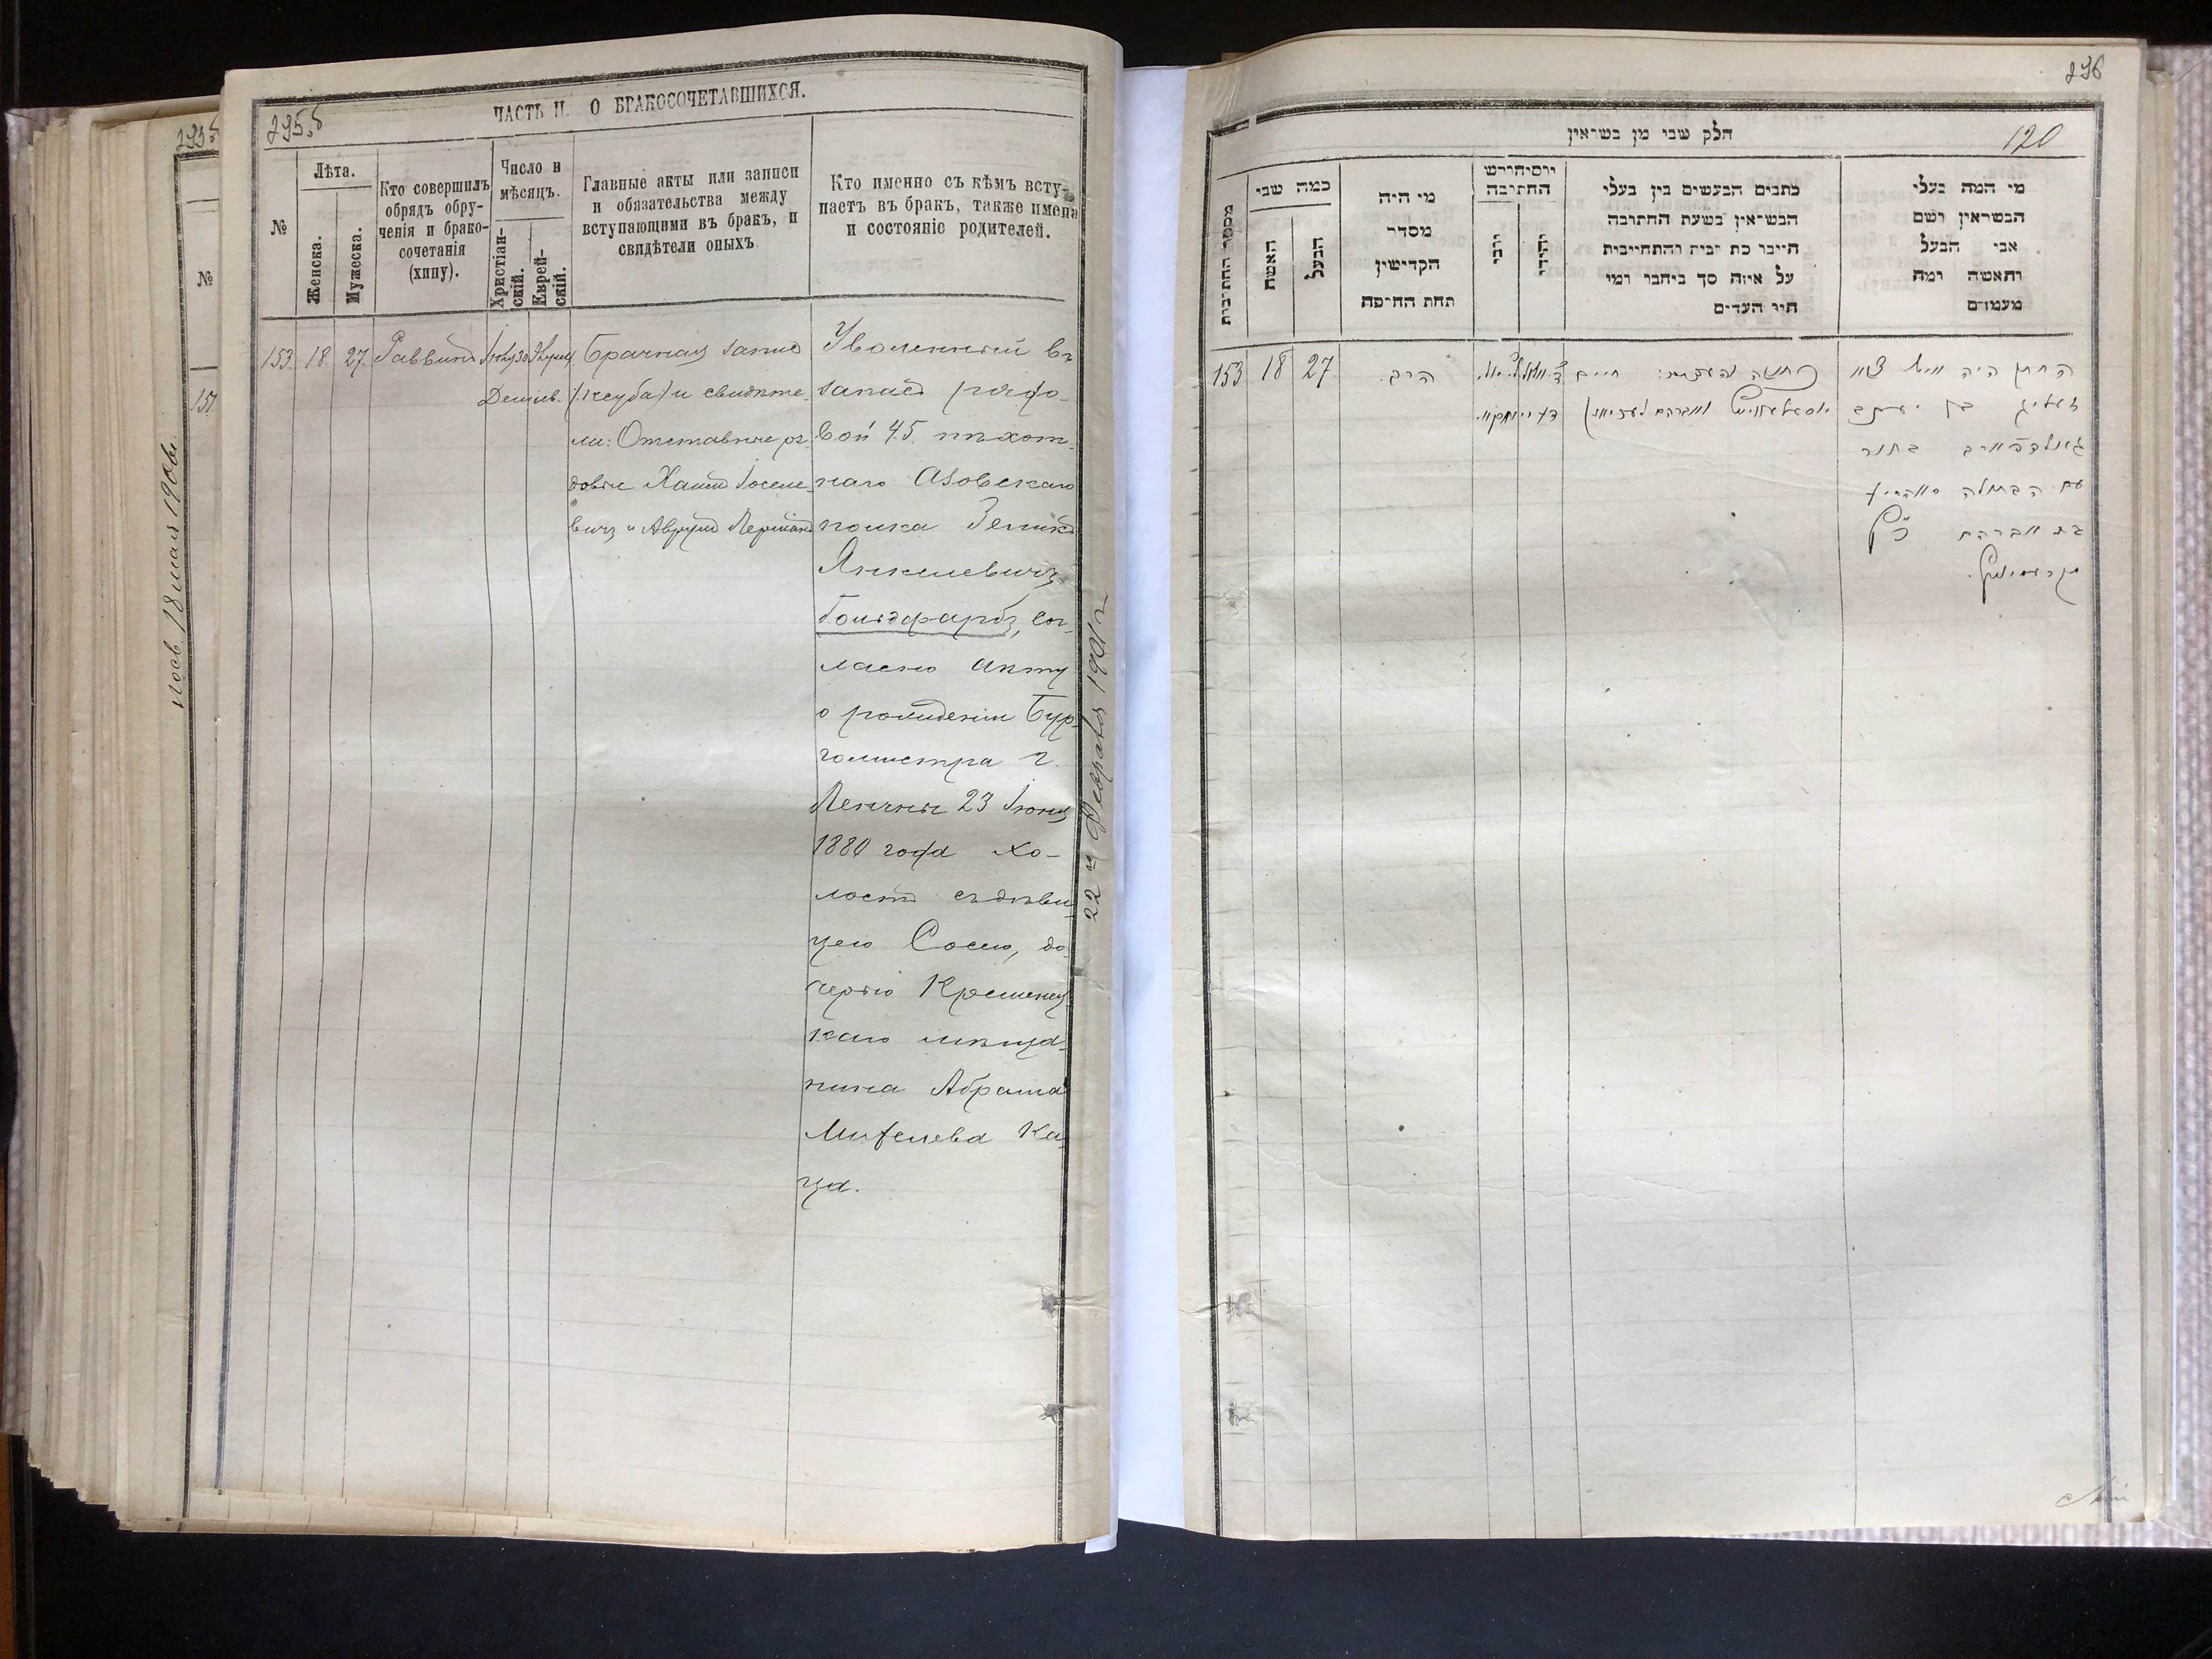 295б
ЧАСТЬ II. О БРАКОСОЧЕТАВШИХСЯ.
295б
№
Лѣта.
Женска.
Мужеска.
Кто совершилъ
обрядъ обру-
ченія и брако-
сочетанія
(хипу).
Число и
мѣсяцъ.
Христіан-
скій.
Еврей-
скій.
Главные акты или записи
и обязательства между
вступающими въ бракъ, и
свидѣтели оныхъ.
Кто именно съ кѣмъ всту-
паетъ въ бракъ, также имена
и состояніе родителей.
153. 18. 27. Раввинъ
Брачная запис
(Ксуба) и свидѣте-
ли: Отставные ря-
довые Хаимъ Іоселе-
вичъ и Аврумъ
Уволенный въ
запасъ рядо-
вой 45. пѣхот-
наго Азовскаго
полка Зеликъ
Янкелевичъ
Гольдфарбъ, сог-
ласно акту
о рожденіи Бур-
гомистра г.
Ленчны 23 Іюня
1880 года хо-
лостъ съ дѣви-
цею Сосею, до-
черью Кременец-
каго мѣща-
нина Абрама
Ка-
ца.
22 Февраля 190
№
151
18 мая 1906
296
120
חלק שני מן בשואין
מספר החתונות
כמה שני
האשה
הבעל
מי היה
מסדר
הקדישין
תחת החופה
יום וחודש
החתונה
כתבים הנעשים בין בעלי
הנשואין בשעת החתונה
היינו כת ובית והתחייבות
על איזה סך ביחבו ומי
היו העדים
מי המה בעלי
הנשואין ושם
אבי הבעל
והאשה ומה
מעמדם
153 18 27 הרב.
החתן היה
זעליג בן יעקב
גאלדפארב בחור
עם הבתולה
בת אברהם כ״ץ